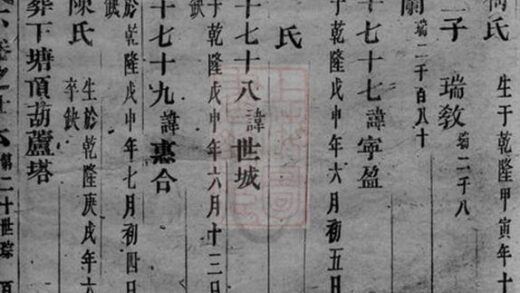 氏 生于乾隆甲寅年十
子 瑞敎 瑞二千八
瑞二千百八十
七十七諱寧盈
乾隆戊申年六月初五日
氏
七十八諱世城
于乾隆戊申年六月十三日
缺
七十九諱惠合
於乾隆戊申年七月初四日
缺
陳氏 生於乾隆庚戌年六
卒缺
葬下塘頂葫蘆塔
卷之十六 第二十世踪